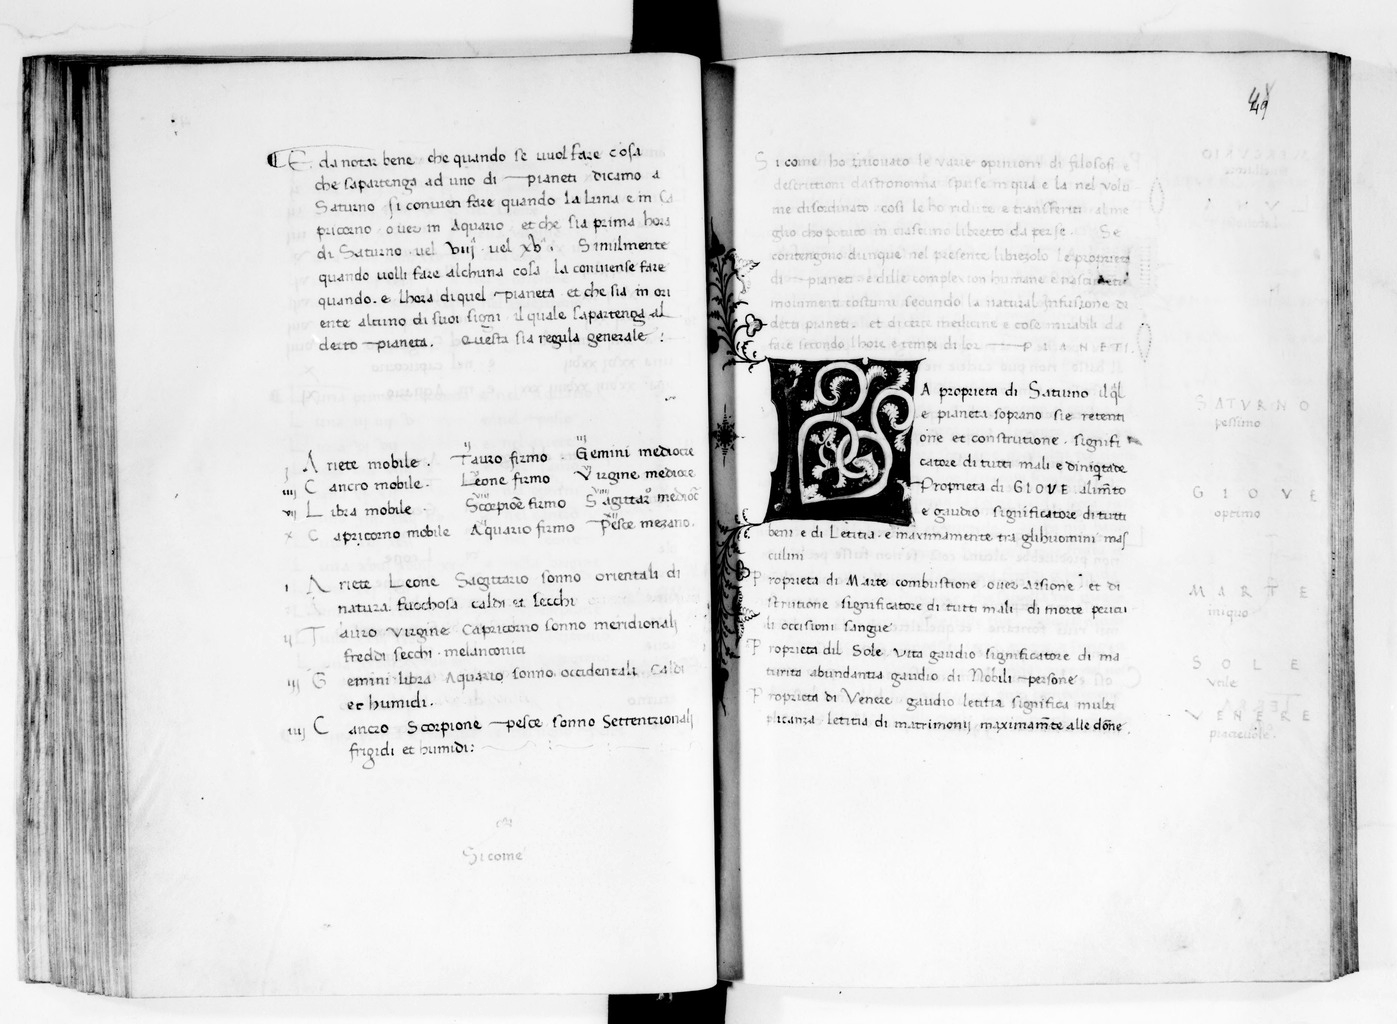 E da notar bene che quando se vuol fare cosa
che sapartenga ad uno di pianeti dicamo a
Saturno si convien fare quando la Luna e in Ca
pricorno over in Aquario et che sia prima hora
di Saturno vel viij vel xv. Similmente
quando volli fare alchuna cosa la conviense fare
quando e lhora di quel pianeta et che sia in ori
ente alcuno di suoi signi il quale sapartenga al
decto pianeta. Questa sia regula generale :
j A riete mobile . ij Tauro firmo iij Gemini mediocre
iiij C ancro mobile . v Leone firmo vj Virgine mediocre
vij L ibra mobile viij Scorpiõe firmo viiij Sagittar̃ medioc̃
x C apricorno mobile xj Aquario firmo xij Pesce mezano.
j A riete Leone Sagittario sonno orientali di
natura fucchosa caldi et secchi
ij T auro Virgine Capricorno sonno meridionali
freddi secchi melanconici
iij G emini libra Aquario sonno occidentali caldi
et humidi.
iiij C ancro Scorpione pesce sonno Settentrionali
frigidi et humidi:
Si come
49
S i come ho trovato le varie opinioni di filosofi e
descrittioni dastronomia sparse in qua e la nel volu
me disordinato cosi le ho ridutte e transferiti al me
glio cho potuto in questo libretto da perse. Se
contengono dunque nel presente libriczolo le proprieta
di pianeti e dille complexion humane e
movimenti costumi secundo la natural infusione di
detti pianeti. et dicerte medicine e cose mirabili da
fare secondo lhore e tempi di lor PIANETI.
L A proprieta di Saturno il q̃l
e pianeta soprano sie retenti
one et construtione . signifi
catore di tutti mali e
Proprieta di GIOVE alim̃to
e gaudio significatore di tutti
beni e di Letitia e maximamente tra gli huomini mas
culini
P roprieta di Marte combustione over arsione et di
strutione significatore di tutti mali di morte pericu
li occisioni sangue
P roprieta dil Sole vita gaudio significatore di ma
turita abundantia gaudio di Nobili persone
P roprieta di Venere gaudio letitia significa multi
plicanza letitia di matrimonij maximam̃te alle dõne.
SATVRNO
pessimo
GIOVE
optimo
MARTE
iniquo
SOLE
vtile
VENERE
piacevole.